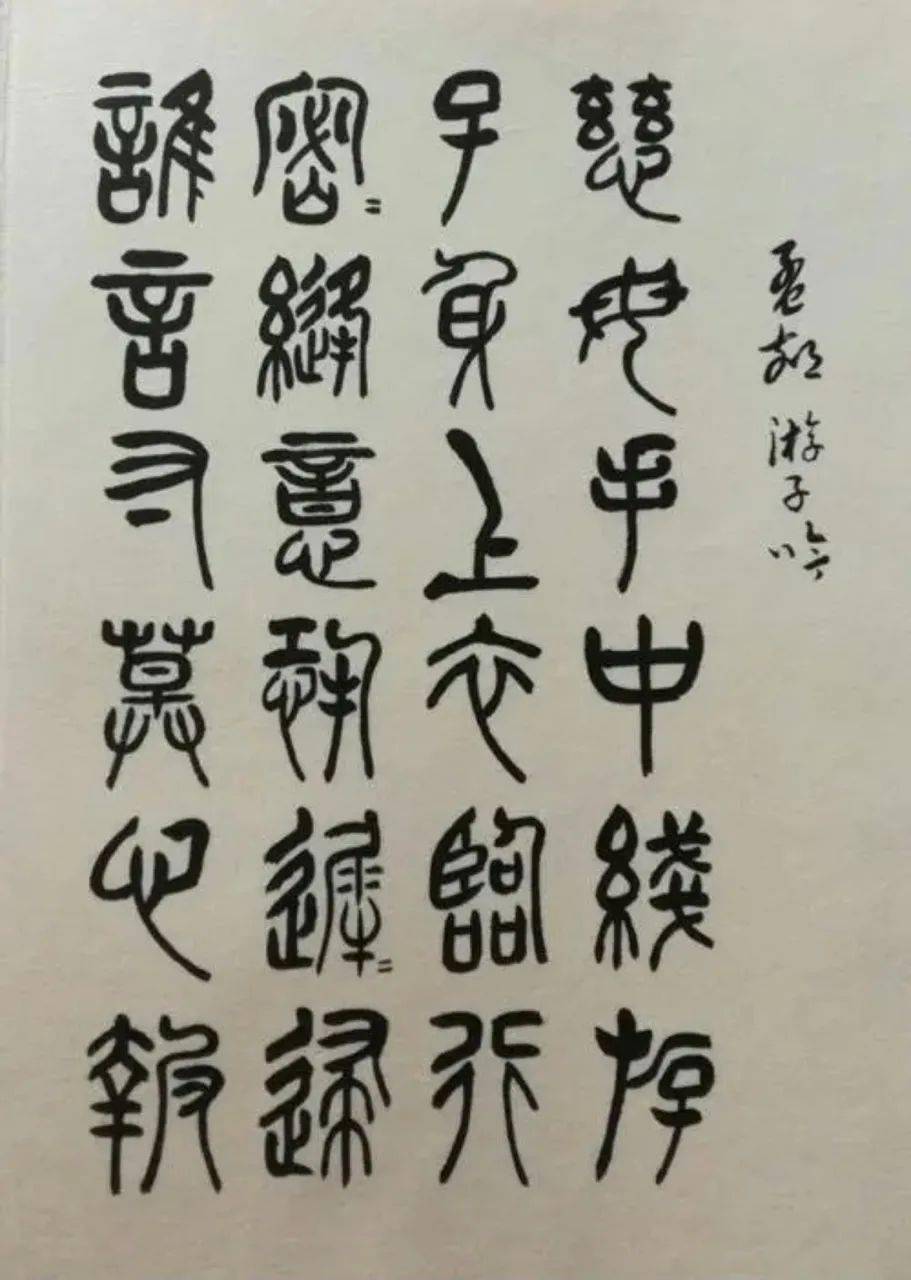 孟郊 游子吟
慈母手中綫斿
子身上衣臨行
密=縫意恐遲=歸
誰言寸草心報